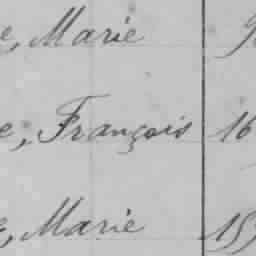 e, Marie
e, François 16
e, Marie 15